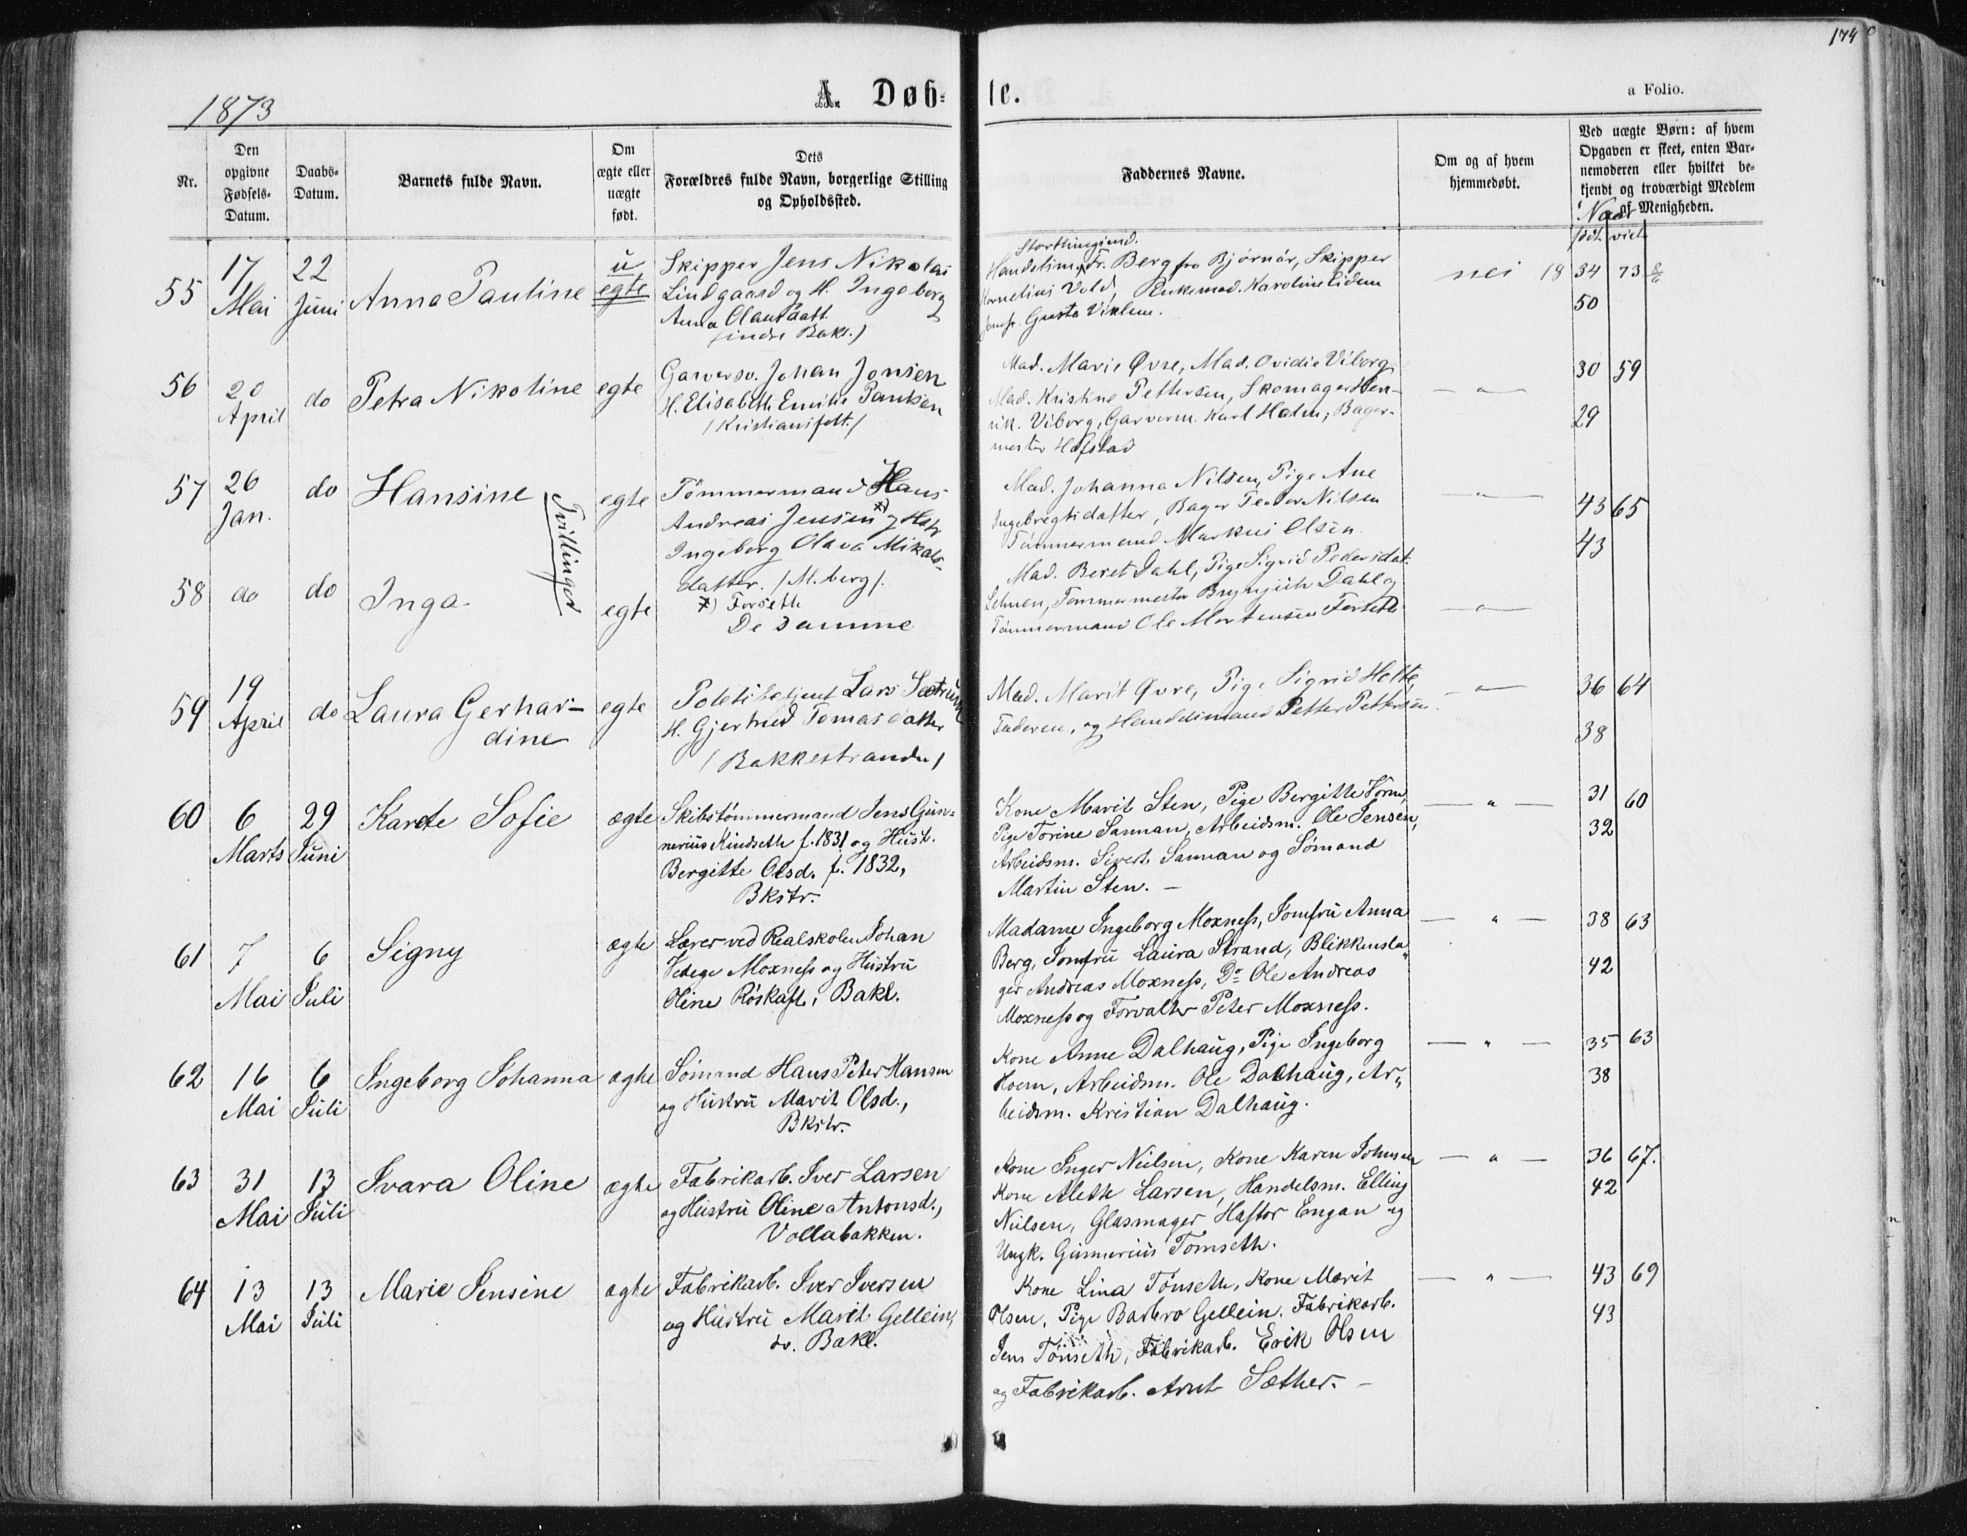 174
1873
A. Døb-
te.
a Folio.
Nr.
Den opgivne Fødsels-Datum.
Daabs-Datum.
Barnets fulde Navn.
Om ægte eller uægte født.
Dets Forældres fulde Navn, borgerlige Stilling og Opholdssted.
Faddernes Navne.
Om og af hvem hjemmedøbt.
Ved uægte Børn: af hvem Opgaven er skeet, enten Barnemoderen eller hvilket bekjendt og troværdigt Medlem af Menigheden.
Naar
født viet
55
17 Mai
22 Juni
Anna Pauline
u
egte
Skipper Jens Nikolai
Lindgaard og H. Ingeborg
Anna
Baks.)
Storthingsmd.
Fr. Berg fra Bjørnør, Skipper
Kornelius Vold, Enkemad. Karoline Eidem
Jomfr.
nei
18 34 73
50
56
20 April
do
Petra Nikoline
egte
Garversv. Johan Jonsen
H. Elisabeth Emilie Paulsen
Mad. Marie Øvre, Mad. Ovidia Viborg
Mad. Kristine Pettersen, Skomager Hen-
rik Viborg, Garverm. Karl Halm, Bager-
mester Hofstad
— " —
30 59
29
57
26 Jan.
do
Hansine
Tvillinger
egte
Tømmermand Hans
Andreas Jensen x) og Hstr
Ingeborg Olava Mikals-
datter. / M.berg /.
x) Forseth
Mad. Johanna Nilsen, Pige Ane
Ingebregtsdatter, Bager Peder Nilsen
Tømmermand Markus Olsen.
— " —
43 65
43
58
do
do
Inga
egte
De Samme
Mad. Beret Dahl, Pige Sigrid Pedersdat.
Lehnen, Tømmermester Brynjulv Dahl og
Tømmermand Ole Mortensen Forseth
— " —
59
19 April
do
Laura Gerhar-
dine
egte
Politibetjent Lars Sætrum
H. Gjertrud Tomasdatter
/ Bakkestranden /
Mad. Marit Øvre, Pige Sigrid Hofte
Faderen, og Handelsmand Petter Pettersen.
— " —
36 64
38
60
6 Marts
29 Juni
Karete Sofie
ægte
Skibstømmermand Jens Gun-
nerius Kindseth f. 1831 og Hust.
Bergitte Olsd. f. 1832,
Bkstr.
Kone Marit Sten, Pige Bergitte Horn,
Pige Torine Sannan, Arbeidsm. Ole Jensen,
Arbeidsm. Sivert Sannan og Sømand
Martin Sten. —
— " —
31 60
32
61
7 Mai
6 Juli
Signy
ægte
Lærer ved Realskolen Johan
Vedege Moxness og Hustru
Oline Röskaft, Bakl.
Madame Ingeborg Moxness, Jomfru Anna
Berg, Jomfru Laura Strand, Blikkensla-
ger Andreas Moxness, Do Ole Andreas
Moxness og Forvalter Peter Moxness.
— " —
38 63
42
62
16 Mai
6 Juli
Ingeborg Johanna
ægte
Sømand Hans Peter Hansen
og Hustru Marit Olsd.,
Bkstr.
Kone Anne Dalhaug, Pige Ingeborg
Hoem, Arbeidsm. Ole Dalhaug, Ar-
beidsm. Kristian Dalhaug.
— " —
35 63
38
63
31 Mai
13 Juli
Ivara Oline
ægte
Fabrikarb. Iver Larsen
og Hustru Oline Antonsd.,
Vollabakken.
Kone Inger Nielsen, Kone Karen Johnsen
Kone Aleth Larsen, Handelsm. Elling
Nielsen, Glasmager Haftor Engan og
Ungk. Gunnerius Tomseth.
— " —
36 67.
42
64
13 Mai
13 Juli
Marie Jensine
ægte
Fabrikarb. Iver Iversen
og Hustru Marit Gellein,
Bakl.
Kone Lina Tönseth, Kone Marit
Olsen, Pige Barbro Gellein, Fabrikarb.
Jens Tönseth, Fabrikarb. Erik Olsen
og Fabrikarb. Arnt Sæther. —
— " —
43 69
43